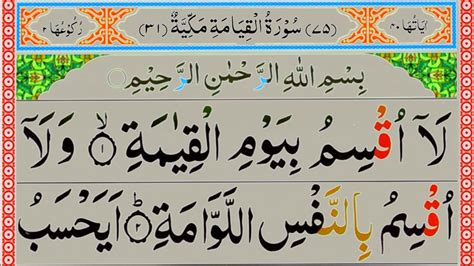 اٰيَاتُهَا ٤٠ (٧٥) سُوْرَةُ الْقِيَامَةِ مَكِّيَّةٌ (٣١) رُكُوْعُهَا ٢
بِسْمِ اللّٰهِ الرَّحْمٰنِ الرَّحِيْمِ
لَآ اُقْسِمُ بِيَوْمِ الْقِيٰمَةِ ۙ ۝١ وَلَآ
اُقْسِمُ بِالنَّفْسِ اللَّوَّامَةِ ؕ ۝٢ اَيَحْسَبُ